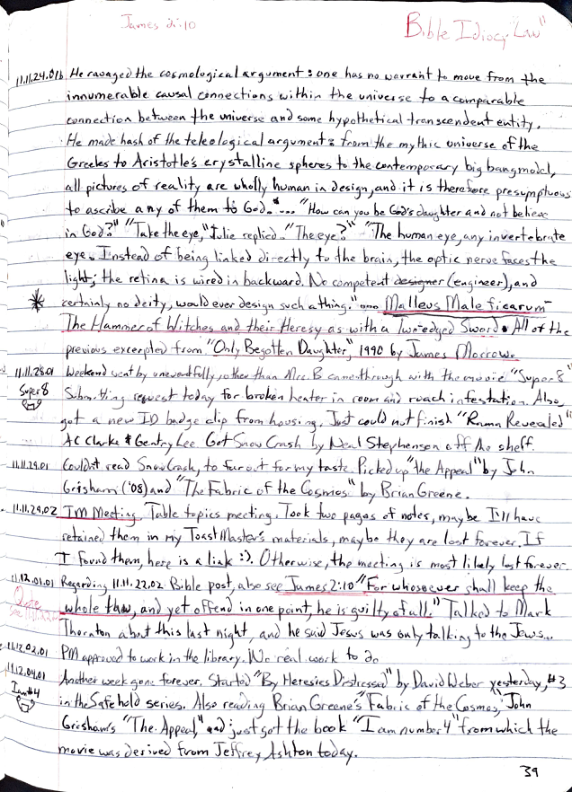 James 2:10
Bible Idiocy Law"
11.11.24.01b He ravaged the cosmological argument: one has no warrant to move from the
innumerable causal connections within the universe to a comparable
connection between the universe and some hypothetical transcendent entity.
He made hash of the teleological argument: from the mythic universe of the
Greeks to Aristotle's crystalline spheres to the contemporary big bang model,
all pictures of reality are wholly human in design, and it is therefore presumptuous
to ascribe any of them to God."... "How can you be God's daughter and not believe
in God?" "Take the eye," Julie replied. "The eye?" "The human eye, any invertebrate
eye. Instead of being linked directly to the brain, the optic nerve faces the
light; the retina is wired in backward. No competent designer (engineer), and
certainly no deity, would ever design such a thing." Malleus Maleficarum -
The Hammer of Witches and their Heresy as with a Two-edged Sword. All of the
previous excerpted from "Only Begotten Daughter," 1990 by James Morrow.
11.11.28.01 Weekend went by uneventfully, other than Mrs. B came through with the movie "Super 8"
Super 8 Submitting request today for broken heater in room and roach infestation. Also
got a new ID badge clip from housing. Just could not finish "Rama Revealed"
AC Clarke & Gentry Lee. Got Snow Crash by Neal Stephenson off the shelf.
11.11.29.01 Couldn't read Snow Crash, to far out for my taste. Picked up "the Appeal" by John
Grisham ('08) and "The Fabric of the Cosmos" by Brian Greene.
11.11.29.02 TM Meeting. Table topics meeting. Took two pages of notes, maybe I'll have
retained them in my ToastMaster's materials, maybe they are lost forever. If
I found them, here is a link :). Otherwise, the meeting is most likely lost forever.
11.12.01.01 Regarding 11.11.22.02 Bible post, also see James 2:10 "For whosoever shall keep the
whole law, and yet offend in one point, he is guilty of all." Talked to Mark
Thornton about this last night, and he said Jews was only talking to the Jews...
11.12.02.01 PM approved to work in the library. No real work to do
11.12.04.01 Another week gone forever. Started "By Heresies Distressed" by David Weber yesterday, #3
I am #4 in the Safehold series. Also reading Brian Greene's "Fabric of the Cosmos," John
Grisham's "The Appeal," and just got the book "I am number 4" from which the
movie was derived from Jeffrey Ashton today.
39